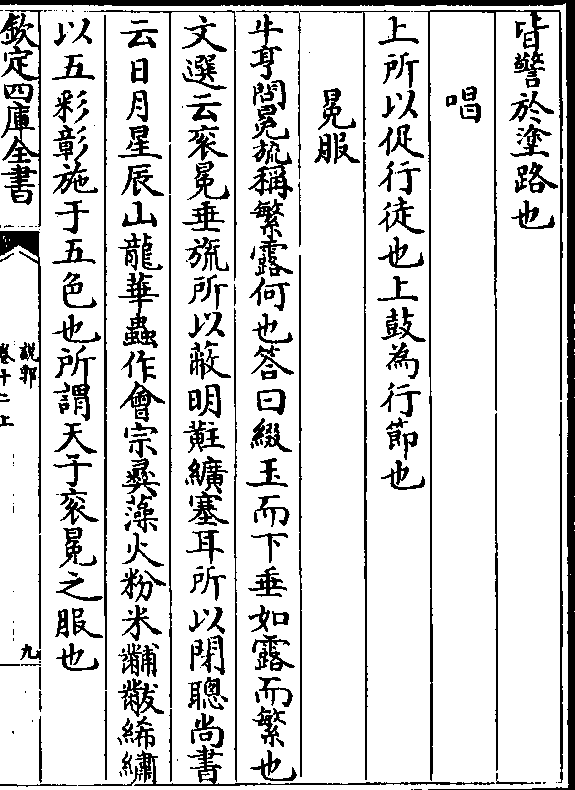 皆警於塗路也
唱
上所以促行徒也上鼓為行節也
冕服
牛亨問冕旒稱繁露何也答曰綴玉而下垂如露而繁也
文選云衮冕垂旒所以蔽明黈纊塞耳所以閉聰尚書
云日月星辰山龍華蟲作會宗彝藻火粉米黼黻絺繡
以五彩彰施于五色也所謂天子衮冕之服也
欽定四庫全書
說郛
卷十二上
九